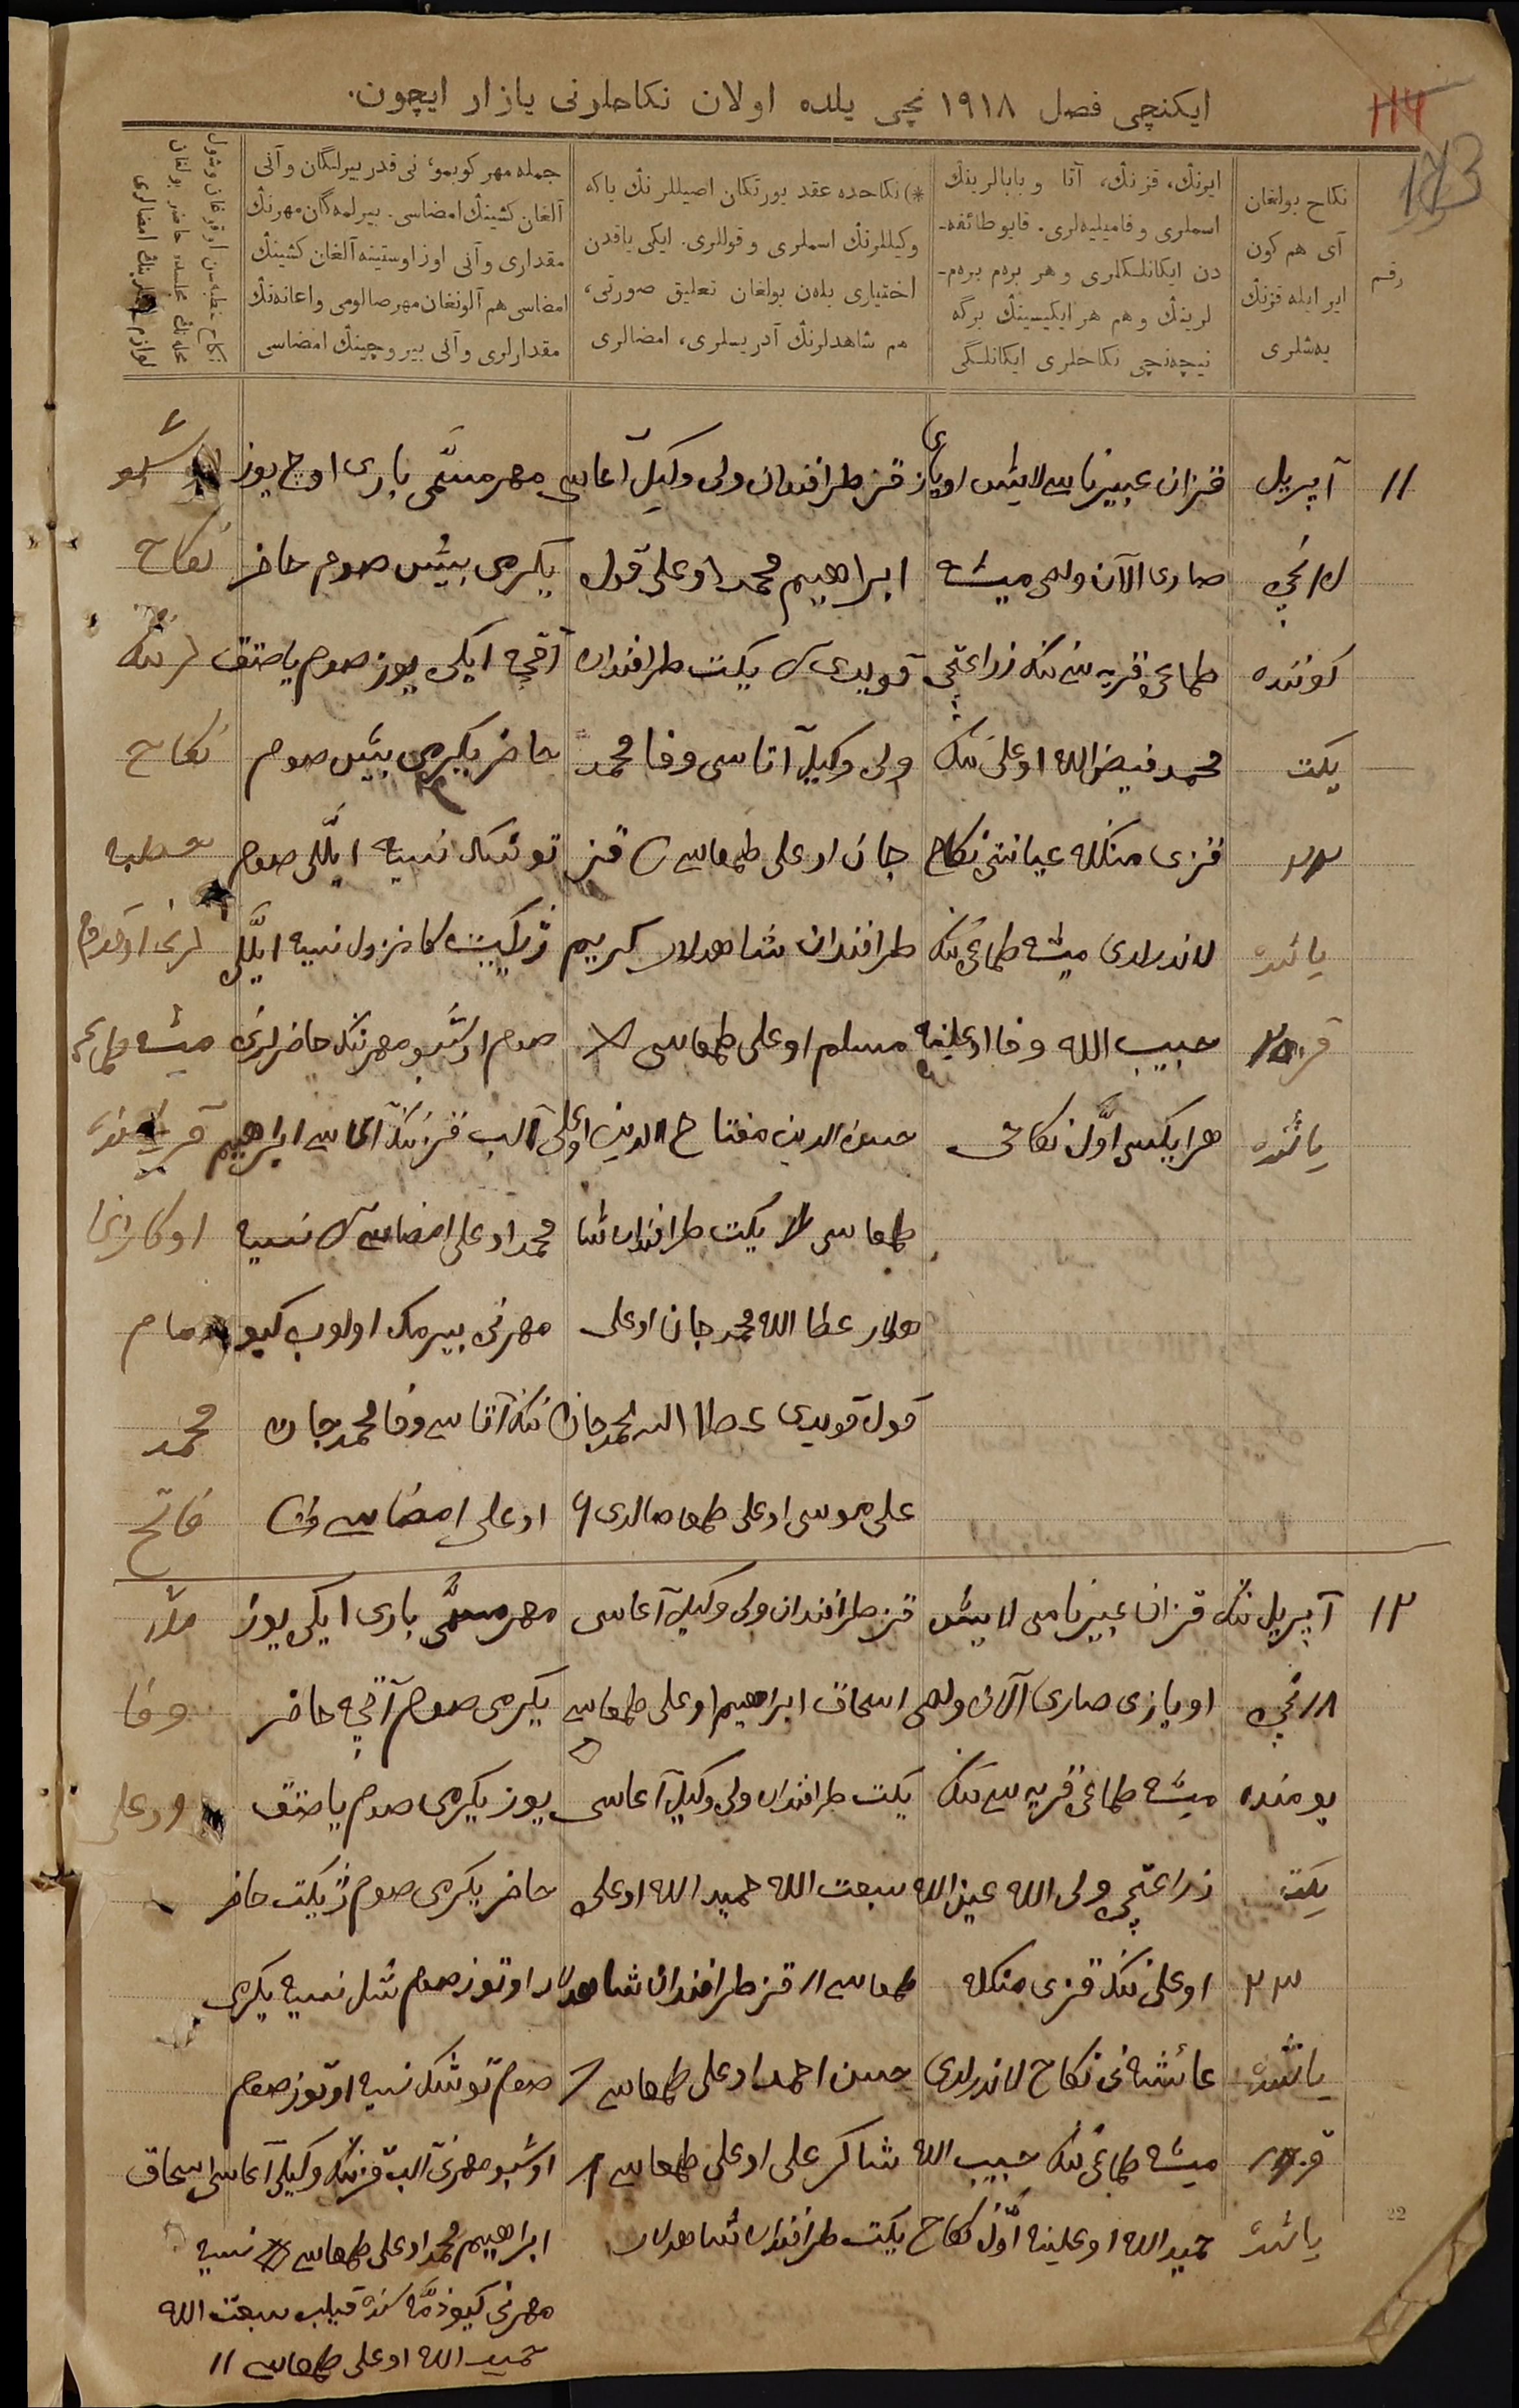 ایکنچی فصل ۱۹۱۸ نچی یلده اولان نکاحلرنی یازار ایچون.
114
173
رقم
نکاح بولغان
آی هم کون
ایر ایله قزنڭ
یه‌شلری
ایرنڭ، قزنڭ، آتا و بابالرینڭ
اسملری و فامیلیه‌لری. قایو طائفه‌ـ
دن ایکانلکلری و هر برەم برەم‌ـ
لرینڭ و هم هر ایکیسینڭ برگه
نیچه‌نچی نکاحلری ایکانلگی
*) نکاحده عقد یورتکان اصیللرنڭ یاکه
وکیللرنڭ اسملری و قوللری. ایکی یاقدن
اختیاری بله‌ن بولغان تعلیق صورتی،
هم شاهدلرنڭ آدریسلری، امضالری
جمله مهر کوبمو، نی قدر بیرلگان و آنی
آلغان کشینڭ امضاسی. بیرلمه‌گان مهرنڭ
مقداری و آنی اوز اوستینه آلغان کشینڭ
امضاسی هم آلونغان مهر صالومی و اعانه‌نڭ
مقدارلری و آنی بیروچینڭ امضاسی
نکاح خطبه‌سن اوقوغان وشول
محله‌نڭ مجلسده حاضر بولغان
لوازم امضالری
۱۱
آپریل
نچی
کوننده
یکت
۲۲
یاشنده
قز
یاشنده
قزان غیبرناسی لایش اویازی
صاری آلان ولصی میشه
طماغی قریه سی ننک زراعتچی
محمد فیض الله اوغلی ننک
قزی منکله عیانتی نکاح
لاندرلدی میشه طماغی ننک
حبیب الله وفا اوغلینه
هر ایکیسی اوّل نکاحی
قز طرافندان ولی وکیل آغاسی
ابراهیم محمد اوغلی قول
قویدی یکت طرافندان
ولی وکیل آتاسی وفا محمد
جان اوغلی طمغاسی قز
طرافندان شاهدلار کریم
مسلم اوغلی طمغاسی
حسن الدین مفتاح الدین اوغلی
طمغاسی یکت طرافندان شا
هدلار عطا الله محمد جان اوغلی
قول قویدی عطا الله محمد جان
علی موسی اوغلی طمغا صالدی
مهر مسمّی باری اوچ یوز
یکرمی بیش صوم حاضر
آقچه ایکی یوز صوم یاصتق
حاضر یکرمی بیش صوم
توشک نسیه ایللی صوم
نسیه ایللی
صوم اوشبو مهرننک حاضرلرنی
آلب قزننک آغاسی ابراهیم
محمد اوغلی امضاسی نسیه
مهرنی بیرمک اولوب کیو
ننک آتاسی وفا محمد جان
اوغلی امضاسی
شبو
نکاح
لرننک
نکاح
خطبه
لرنی اوقدم
میشه طماغی
قریه سنده
اوکازنای
امام
محمد
فاتح
ملا
وفا
اوغلی
۱۲
آپریل ننک
نچی
یومنده
یکت
۲۳
یاشنده
قز
یاشنده
قزان غیبرناسی لایش
اویازی صاری آلان ولصی
میشه طماغی قریه سی ننک
زراعتچی ولی الله عین الله
اوغلی ننک قزی منکله
عائشه نی نکاح لاندرلدی
میشه طماغی ننک حبیب الله
حمید الله اوغلینه اوّل نکاح
قز طرافندان ولی وکیل آغاسی
اسحاق ابراهیم اوغلی طمغاسی
یکت طرافندان ولی وکیل آغاسی
سبعت الله حمید الله اوغلی
طمغاسی قز طرافندان شاهدلار
حسن احمد اوغلی طمغاسی
شاکر علی اوغلی طمغاسی
یکت طرافندان شاهدلار
مهر مسمّی باری ایکی یوز
یکرمی صوم آقچه حاضر
یوز یکرمی صوم یاصتق
حاضر یکرمی صوم ژیکت حاضر
اوتوز صوم شل نسیه یکرمی
صوم توشک نسیه اوتوز صوم
اوشبو مهرنی آلب قزننک وکیلی آغاسی اسحاق
ابراهیم محمد اوغلی طمغاسی نسیه
مهرنی کیو ذمّه سنده قیلب سبعت الله
حمید الله اوغلی طمغاسی ۱۱